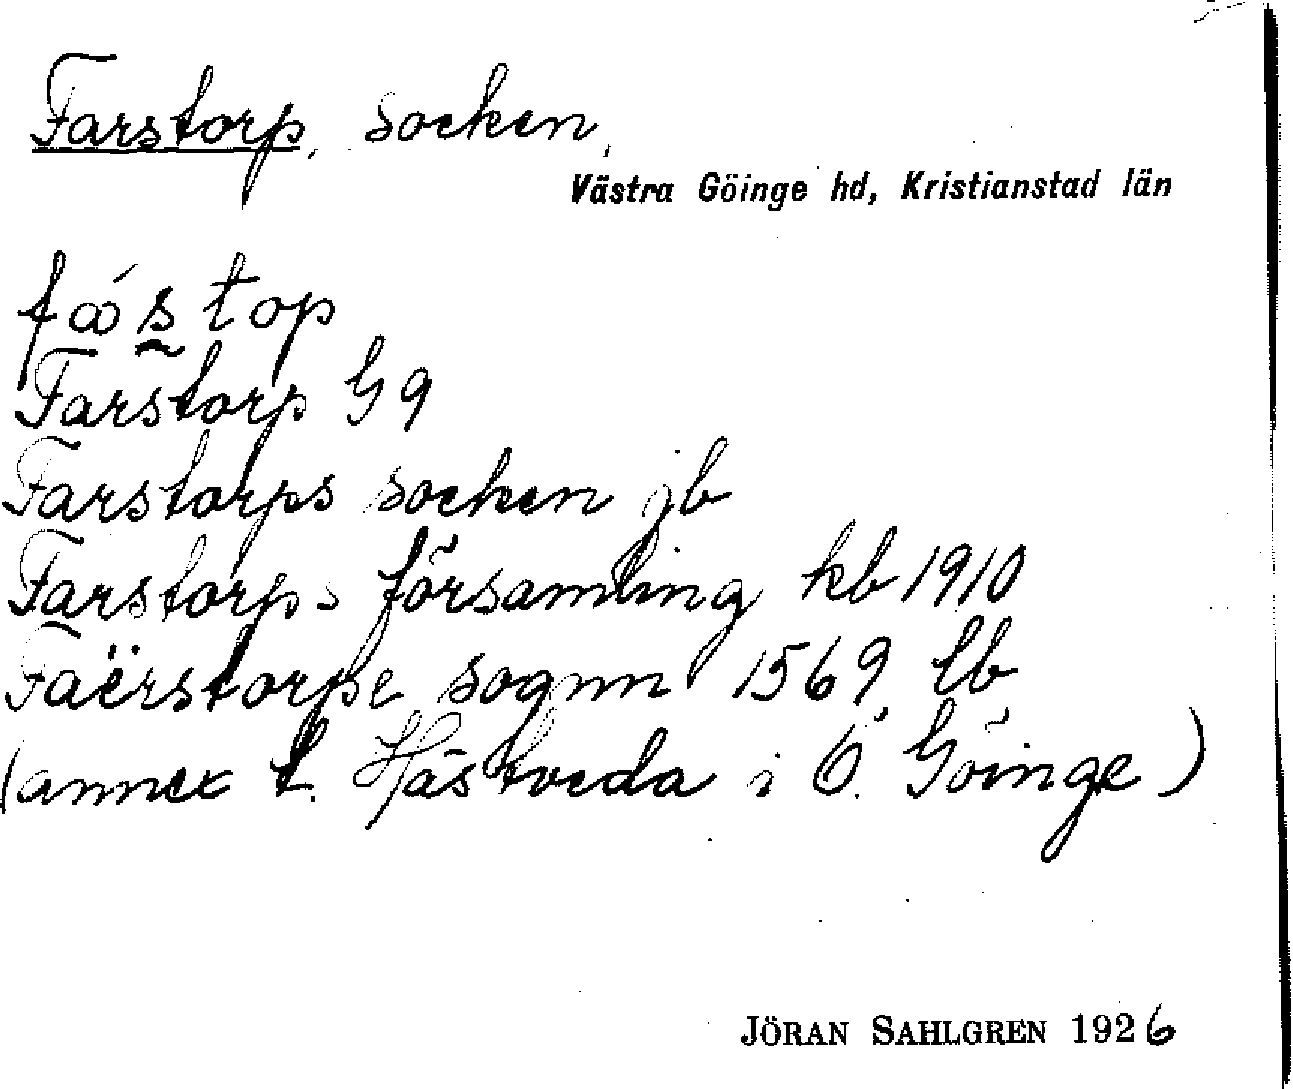 Farstorp, socken,
Västra Göinge hd, Kristianstad län
fástop
Farstorp G 9
Farstorps socken jb
Farstorps församling kb 1910
Faërstorpe sognn 1569 lb
(annex t. Hästveda i Ö. Göinge)
JÖRAN SAHLGREN 1926